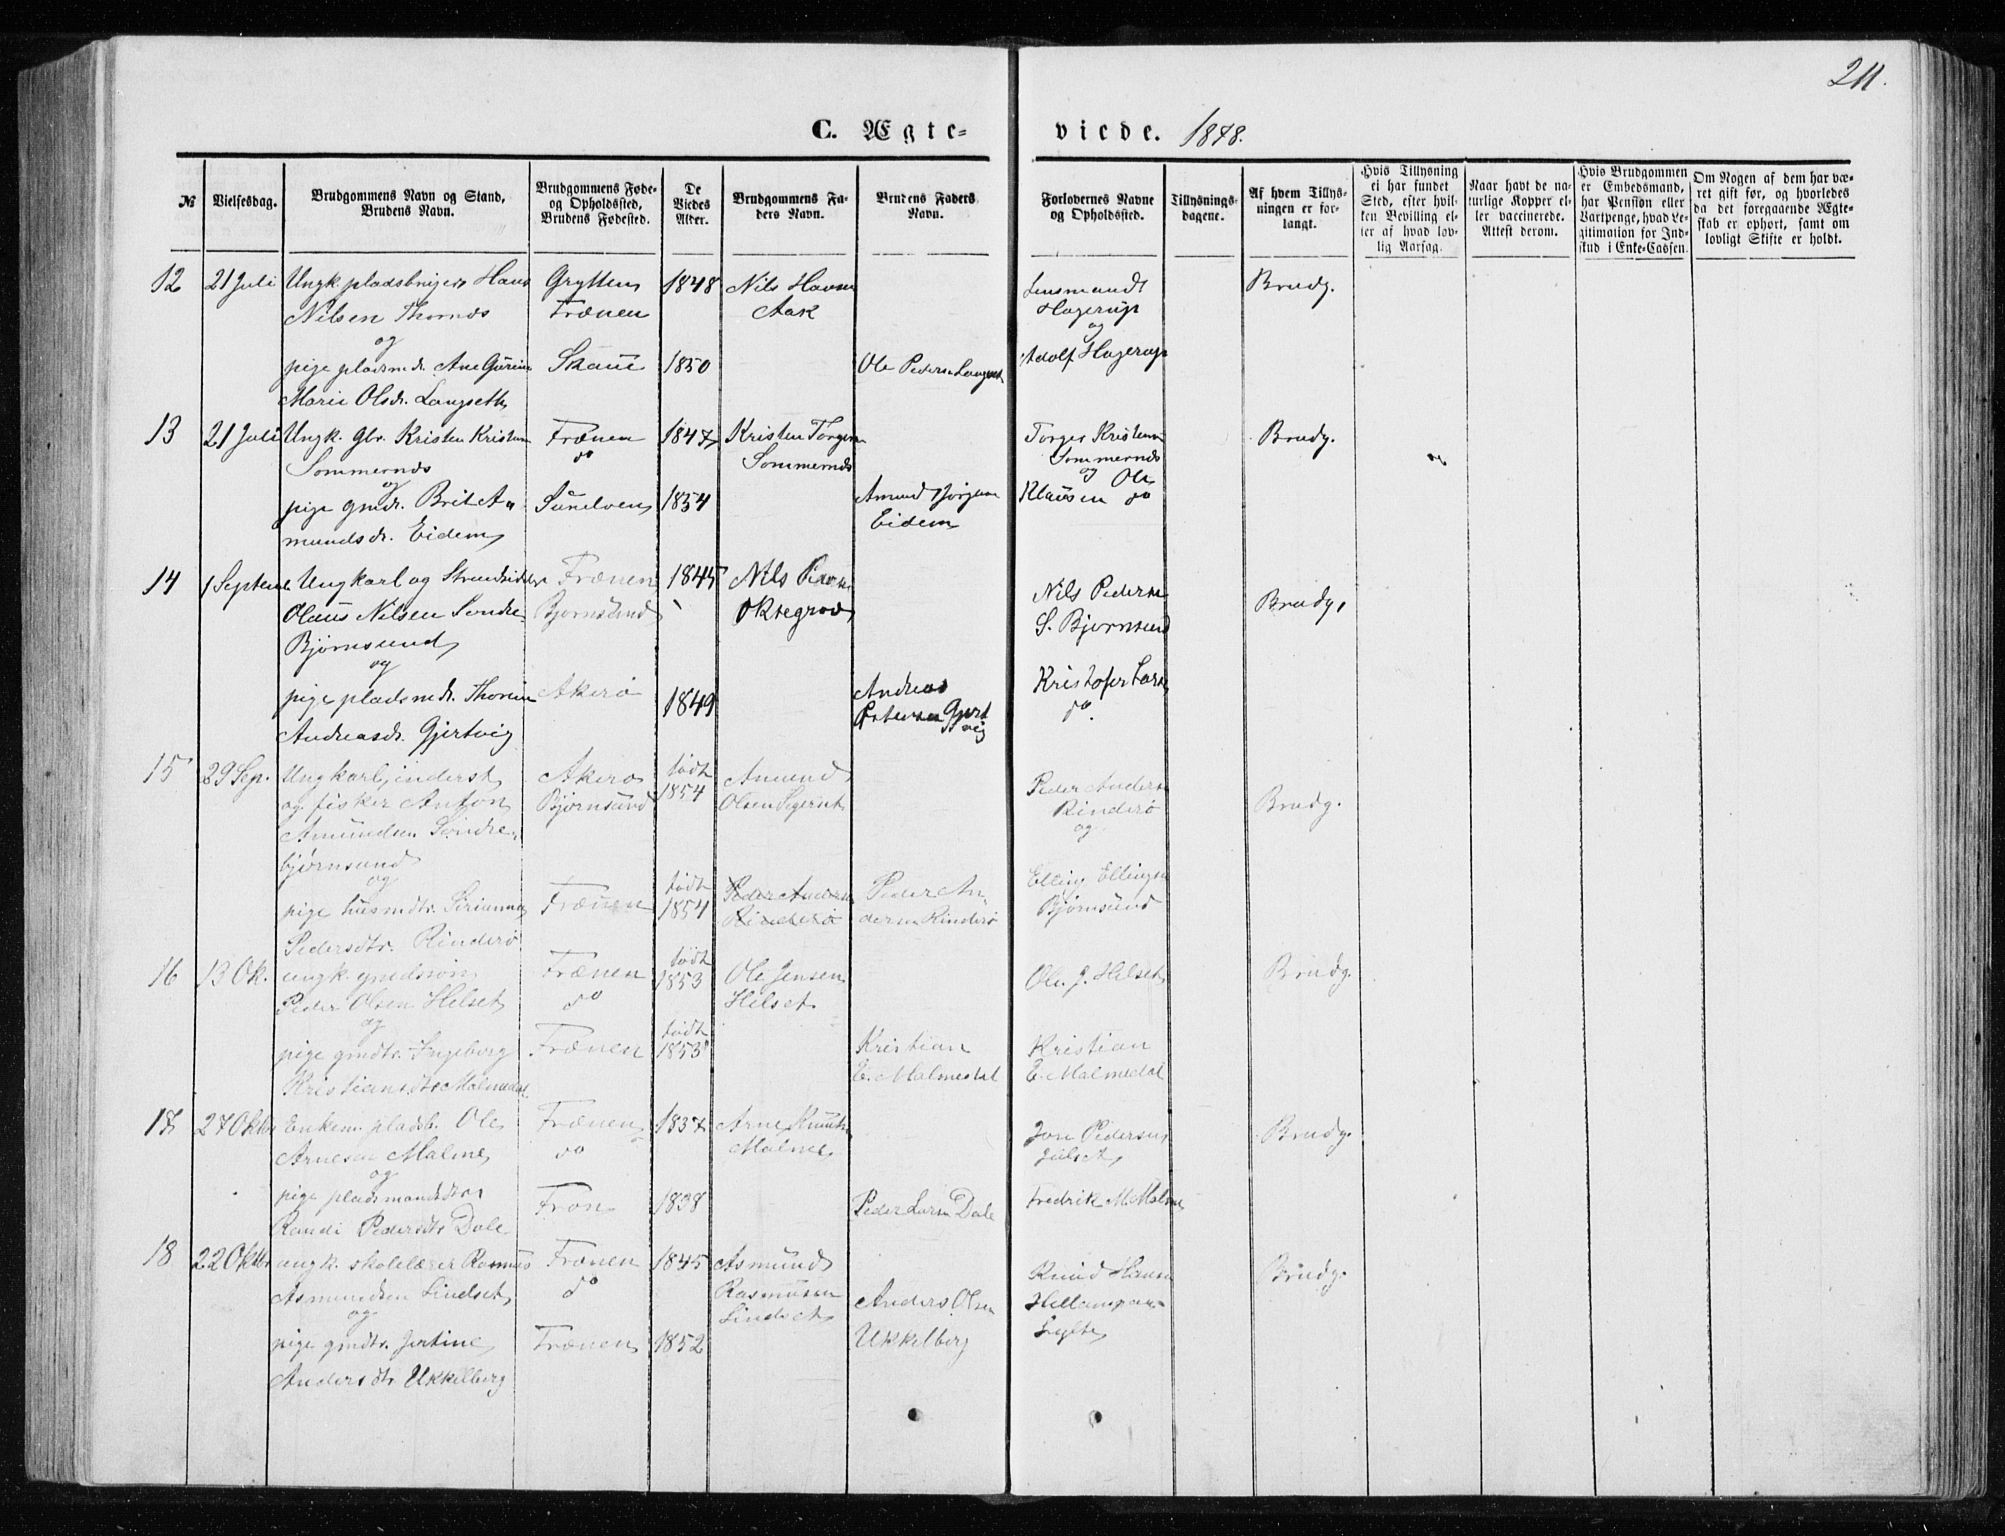 211.
C. Ægte-
viede. 1878.
№
Vielsesdag.
Brudgommens Navn og Stand,
Brudens Navn.
Brudgommens Føde-
og Opholdssted,
Brudens Fødested.
De
Viedes
Alder.
Brudgommens Fa-
ders Navn.
Brudens Faders
Navn.
Forlovernes Navne
og Opholdssted.
Tillysnings-
dagene.
Af hvem Tillys-
ningen er for-
langt.
Hvis Tillysning
ei har fundet
Sted, efter hvil-
ken Bevilling el-
ler af hvad lov-
lig Aarsag.
Naar havt de na-
turlige Kopper el-
ler vaccinerede.
Attest derom.
Hvis Brudgommen
er Embedsmand,
har Pension eller
Vartpenge, hvad Le-
gitimation for Ind-
skud i Enke-Cassen.
Om Nogen af dem har væ-
ret gift før, og hvorledes
da det foregaaende Ægte-
skab er ophørt, samt om
lovligt Skifte er holdt.
12
21 Juli
Ungk. pladsbruger Hans
Nilsen Thornes
og
pige pladsmdr. Ane Gurine
Marie Olsdr. Langseth
Grytten
Frænen
Skaue
1848
1850
Nils Havn
Aak
Ole Pedersen Langset
Lensmand
Hagerup
og
Adolf Hagerup
Brudg.
13
21 Juli
Ungk. Gbr. Kristen Kristen
Sommernes
og
pige gmdr. Brit A-
mundsdr. Eidem
Frænen
do
Sunelven
1847
1854
Kristen Torgers
Sommernes
Amund Jørgens
Eidem
Torger Kristens
Sommernes
og Ole
Klausen do
Brudg.
14
1 Septemb
Ungkarl og Strandsidder
Olaus Nilsen Søndre
Bjørnsund
og
pige pladsmdr. Thorine
Andreasdr. Gjertvig
Frænen
Bjørnsund
Akerø
1845
1849
Nils
Andreas
Petersen Gjert
vig
Nils Pederse
S. Bjørnsund
Kristofer Lars
do.
Brudg.
15
29 Sep.
Ungkarl, inderst
og fisker Anton
Amundsen Søndre-
bjørnsund
og
pige husmdtr. Sirianna
Pedersdtr. Rinderø
Akerø
Bjørnsund
Frænen
født
1854
født
1854
Amund
Olsen Segerset
Peder Andersn
Rinderø
Peder An-
dersen Rinderø
Peder Anders
Rinderø
og
Elling Ellings
Bjørnsund
Brudg.
16
13 Ok.
ungk. gmdsøn
Peder Olsen Helset
og
pige gmdtr. Ingeborg
Kristiansdtr Malmedal
Frænen
do
Frænen
født
1853
født
1853
Ole Jensen
Helset
Kristian
E. Malmedal
Ole J. Helset
Kristian
E. Malmedal
Brudg.
17
27 Oktbr
Enkem. pladsb. Ole
Arnesen Malme
og
pige pladsmandsdtr
Randi Pedersdtr Dale
Frænen
do
Fron
1837
1838
Arne Knuts
Malme
Peder Larsn Dale
Jon Pedersen
Julset
Fredrik M. Malme
Brudg.
18
22 Oktbr
ungk. skolelærer Rasmus
Asmundsen Lindset
og
pige gmdtr. Jertine
Andersdtr Ukkelberg
Frænen
do
Frænen
1845
1852
Asmund
Rasmusen
Lindset
Anders Olsen
Ukkelberg
Knud Hansen
Brudg.